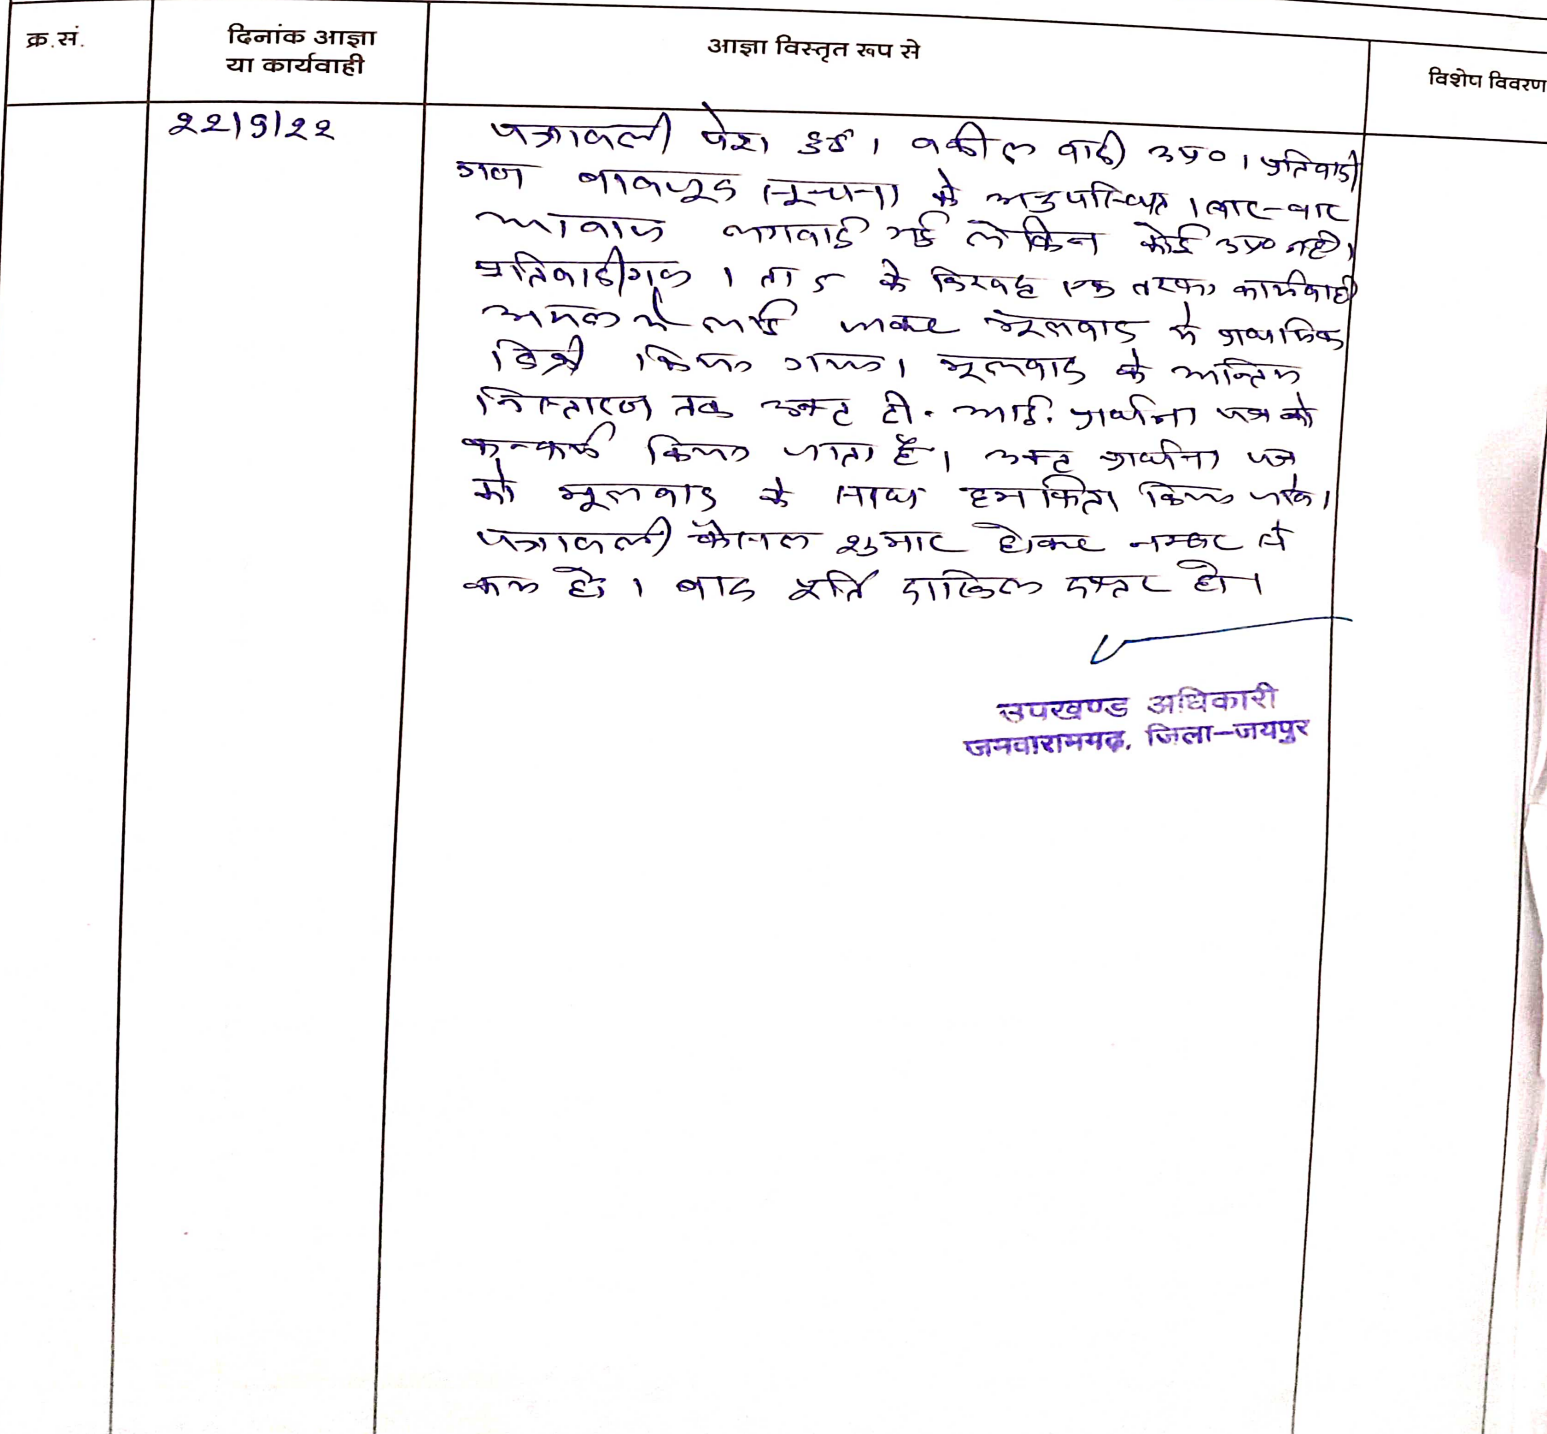 क्र.सं.
दिनांक आज्ञा
या कार्यवाही
आज्ञा विस्तृत रूप से
विशेष विवरण
22/9/22
पत्रावली पेश हुई। वकील वादी उप०। प्रतिवादी
गण बावजूद सूचना के अनुपस्थित। बार-बार
आवाज लगवाई गई लेकिन कोई उप० नहीं।
प्रतिवादीगण 1 ता 5 के विरुद्ध एक तरफा कार्यवाही
अमल में लाई जाकर मूलवाद में प्राथमिक
डिक्री किया गया। मूलवाद के अन्तिम
निस्तारण तक उक्त टी. आई. प्रार्थना पत्र को
कन्फर्म किया जाता है। उक्त प्रार्थना पत्र
को मूलवाद के साथ हमकिता किया जावे।
पत्रावली फैसल शुमार होकर नम्बर से
कम हो। बाद पूर्ति दाखिल दफ्तर हो।
उपखण्ड अधिकारी
जमवारामगढ़, जिला-जयपुर